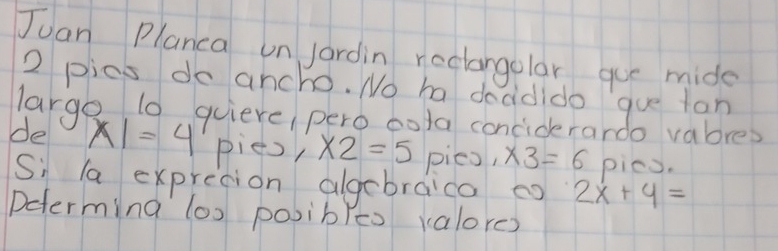 Juan Planea un jardin rectangular que mide
2 pies de ancho. No ha decidido que tan
largo lo quiere, pero esta conciderando valores
de X1 = 4 pies, X2 = 5 pies, X3 = 6 pies.
Si la exprecion algebraica es 2x + 4 =
Determina los posibles valores